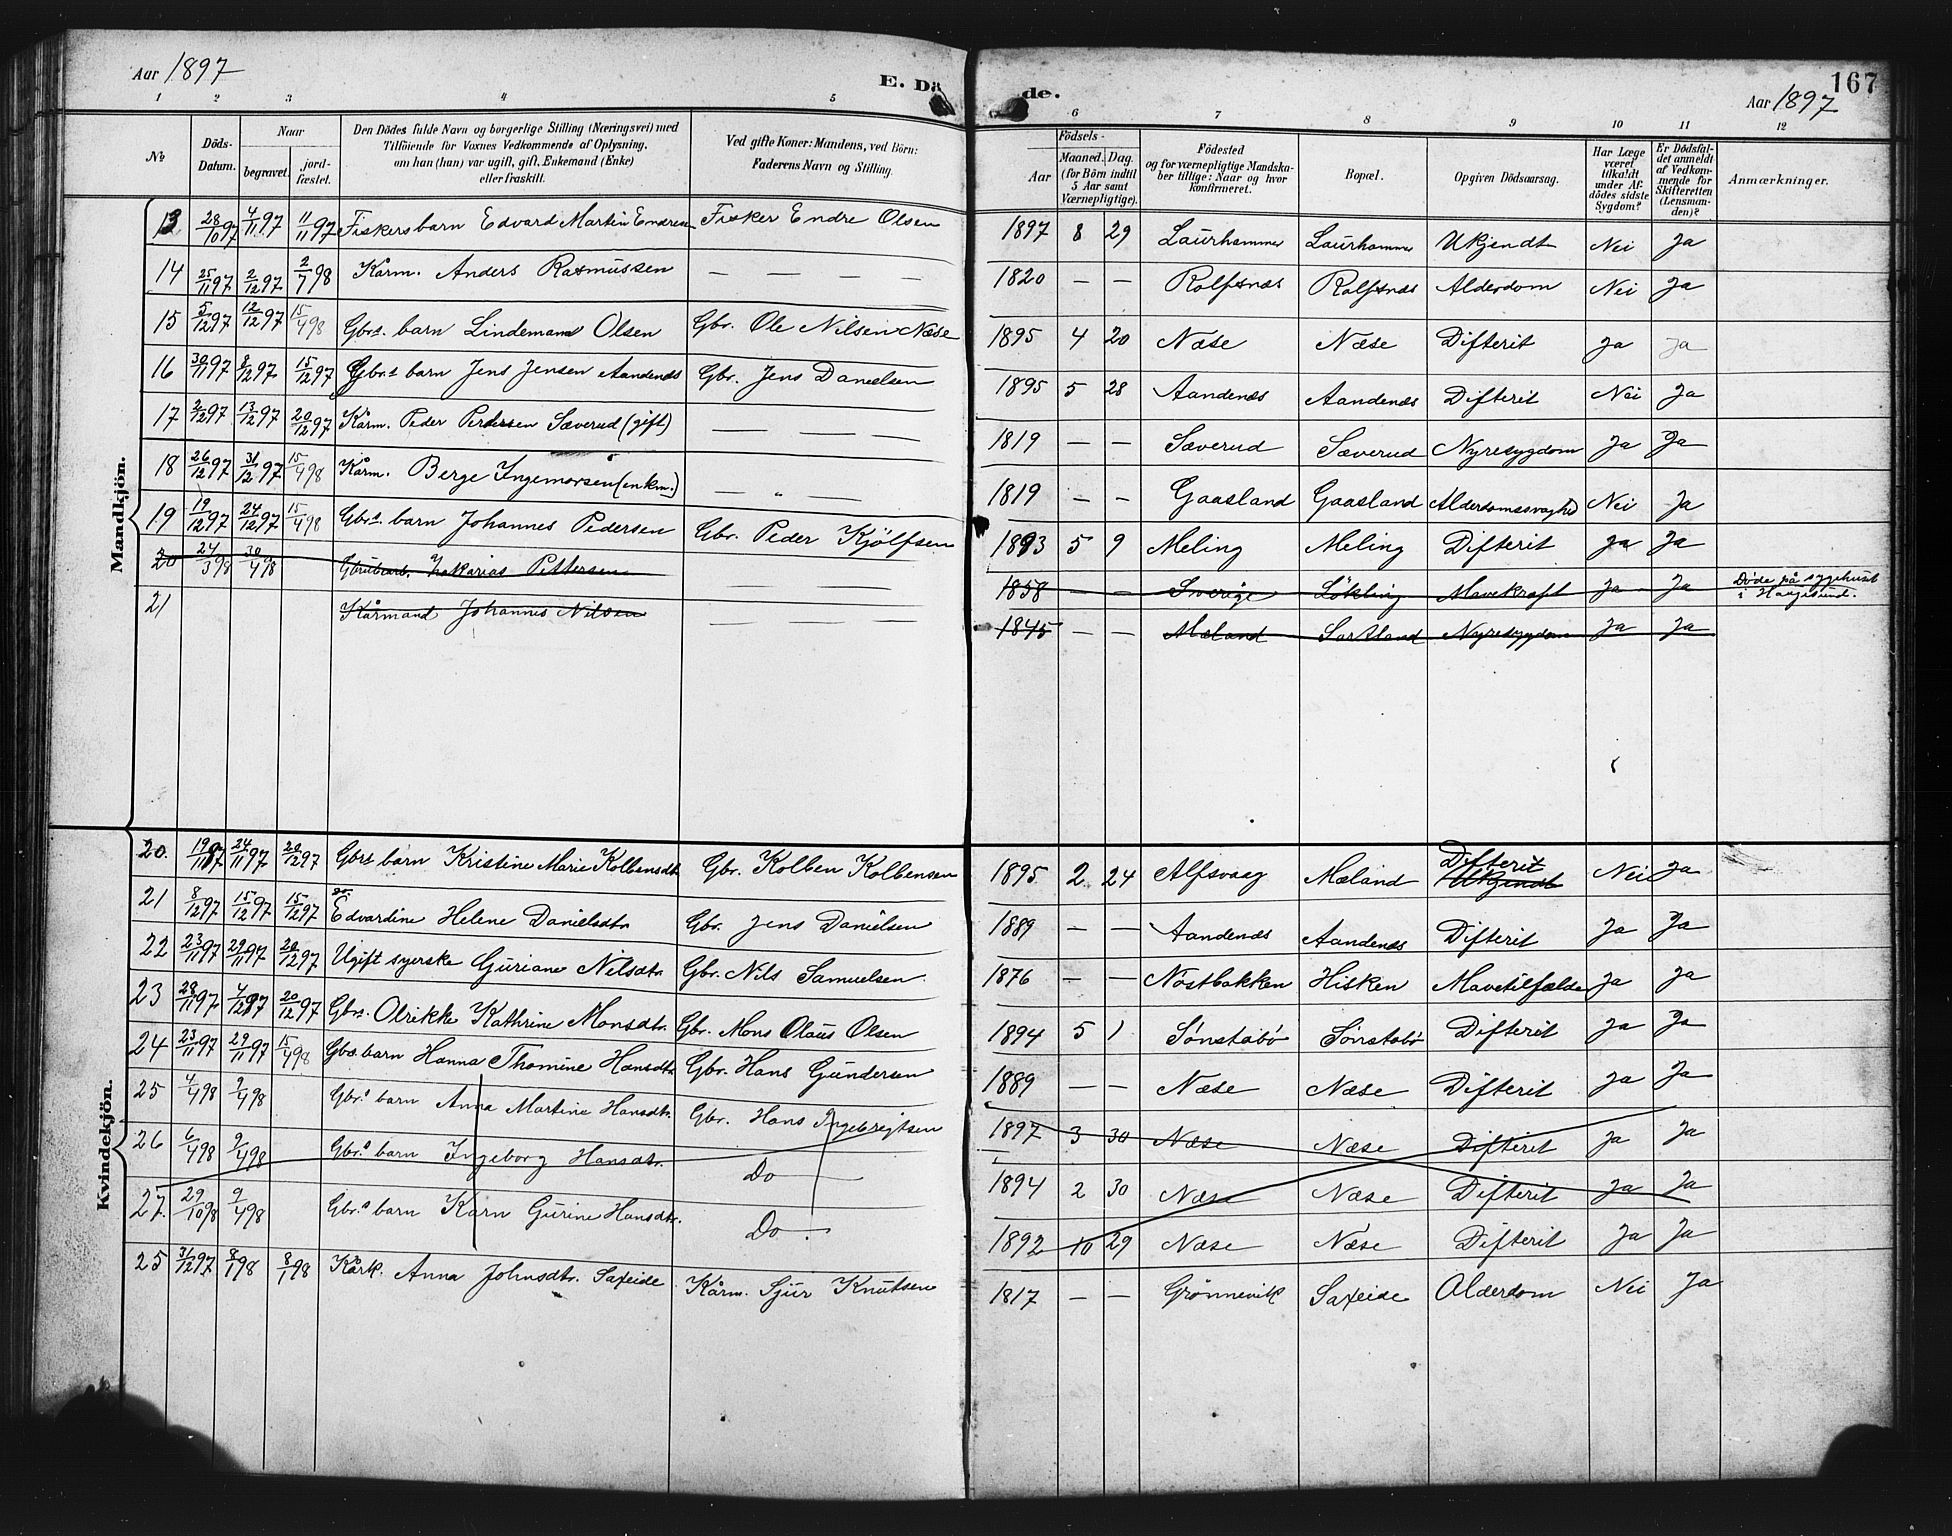 Aar 1897
E. Dö
de.
167
Aar 1897
1 2 3 4 5 6 7 8 9 10 11 12
No
Döds-Datum.
Naar
begravet.
jord-fæstet.
Den Dödes fulde Navn og borgerlige Stilling (Næringsvei) med
Tilföiende for Voxnes Vedkommende af Oplysning,
om han (hun) var ugift, gift, Enkemand (Enke)
eller fraskilt.
Ved gifte Koner: Mandens, ved Börn:
Faderens Navn og Stilling.
Födsels-
Aar
Maaned. Dag.
(for Börn indtil
5 Aar samt
Værnepligtige).
Födested
og for værnepligtige Mandska-
ber tillige: Naar og hvor
konfirmeret.
Bopæl.
Opgiven Dödsaarsag.
Har Læge
været
tilkaldt
under Af-
dödes sidste
Sygdom?
Er Dödsfal-
det anmeldt
af Vedkom-
mende for
Skifteretten
(Lensman-
den)?
Anmærkninger.
Mandkjön.
13 28/10 97 4/11 97 11/11 97 Fiskers barn Edvard Martin Endresen Fisker Endre Olsen 1897 8 29 Laurhammer Laurhammer Ukjendt Nei Ja
14 25/11 97 2/12 97 2/7 98 Kårm. Anders Rasmussen — — — 1820 — — Rolfsnæs Rolfsnæs Alderdom Nei Ja
15 5/12 97 12/12 97 15/4 98 Gbrs. barn Lindemand Olsen Gbr. Ole Nilsen Næse 1895 4 20 Næse Næse Difterit Ja Ja
16 30/11 97 8/12 97 15/12 97 Gbr.s barn Jens Jensen Aandenæs Gbr. Jens Danielsen 1895 5 28 Aandenæs Aandenæs Difterit Nei Ja
17 2/12 97 13/12 97 20/12 97 Kårm. Peder Pedersen Sæverud (gift) — — — 1819 — — Sæverud Sæverud Nyresygdom Ja Ja
18 26/12 97 31/12 97 15/4 98 Kårm. Berge Ingemorsen (enkm.) — " — 1819 — — Gaasland Gaasland Alderdomssvaghed Nei Ja
19 19/12 97 24/12 97 15/4 98 Gbrs. barn Johannes Pedersen Gbr. Peder Kjölfsen 1893 5 9 Meling Meling Difterit Ja Ja
20 24/3 98 30/4 98 Zakarias Pettersen — — — 1858 — — Sverige Lökling Mavekræft Ja Ja Döde på sygehuset
i Haugesund.
21 Kårmand Johannes Nilsen — — — 1845 — — Mæland Sortland Nyresygdom Ja Ja
Kvindekjön.
20. 19/11 97 24/11 97 20/12 97 Gbrs barn Kristine Marie Kolbensdtr. Gbr. Kolben Kolbensen 1895 2 24 Alfsvaag Mæland Difterit Ukjendt Nei Ja
21 8/12 97 15/12 97 15/12 97 Edvardine Helene Danielsdtr. Gbr. Jens Danielsen 1889 — — Aandenæs Aandenæs Difterit Ja Ja
22 23/11 97 29/11 97 20/12 97 Ugift syerske Guriane Nilsdtr. Gbr. Nils Samuelsen. 1876 — — Nøstbakken Hisken Mavetilfælde Ja Ja
23 28/11 97 4/12 97 20/12 97 Gbrs. Olrikke Kathrine Monsdtr. Gbr. Mons Olaus Olsen 1894 5 1 Sønstabø Sønstabø Difterit Ja Ja
24 23/11 97 29/11 97 15/4 98 Gbs. barn Hanna Thomine Hansdtr. Gbr. Hans Gundersen 1889 — — Næse Næse Difterit Ja Ja
25 4/4 98 9/4 98 Gbr.s barn Anna Martine Hansdtr. Gbr. Hans Ingebregtsen 1897 3 30 Næse Næse Difterit Ja Ja
26 6/4 98 9/4 98 Gbr.s barn Ingeborg Hansdtr. Do — 1894 2 30 Næse Næse Difterit Ja Ja
27. 29/10 98 9/4 98 Gbr.s barn Karn Gurine Hansdtr. Do — 1892 10 29 Næse Næse Difterit Ja Ja
25 31/12 97 8/1 98 8/1 98 Kårk. Anna Johnsdtr. Saxeide Kårm. Sjur Knutsen 1817 — — Grønnevik Saxeide Alderdom Nei Ja